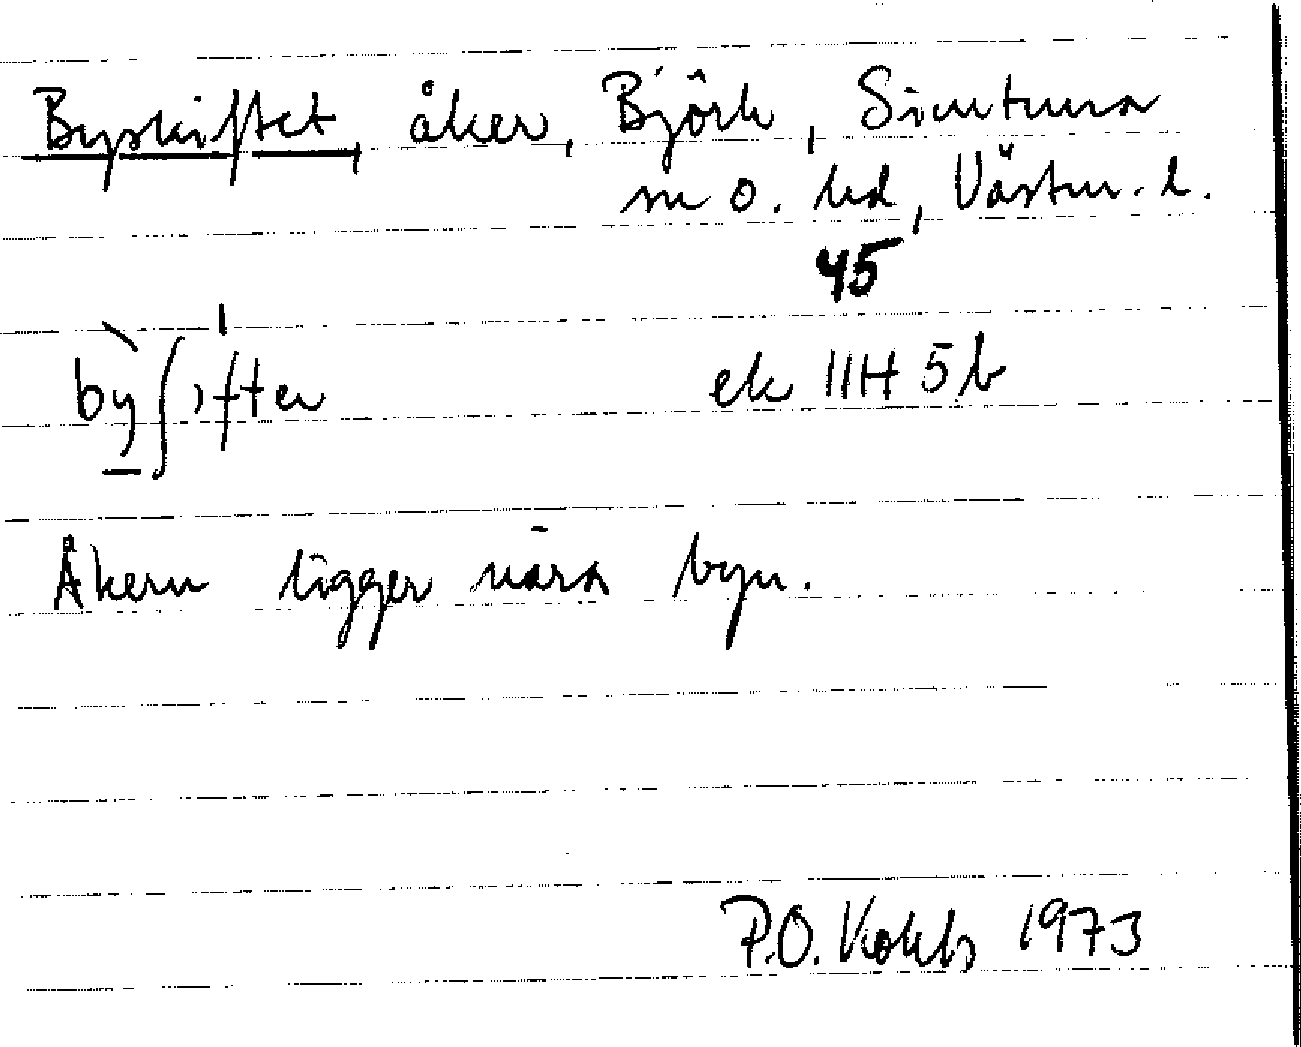 Byskiftet, åker, Björk, Simtuna
sn o. hd, Västm. l.
45
bỳʃıften
ek 11H 5b
Åkern ligger nära byn.
P.O. 1973